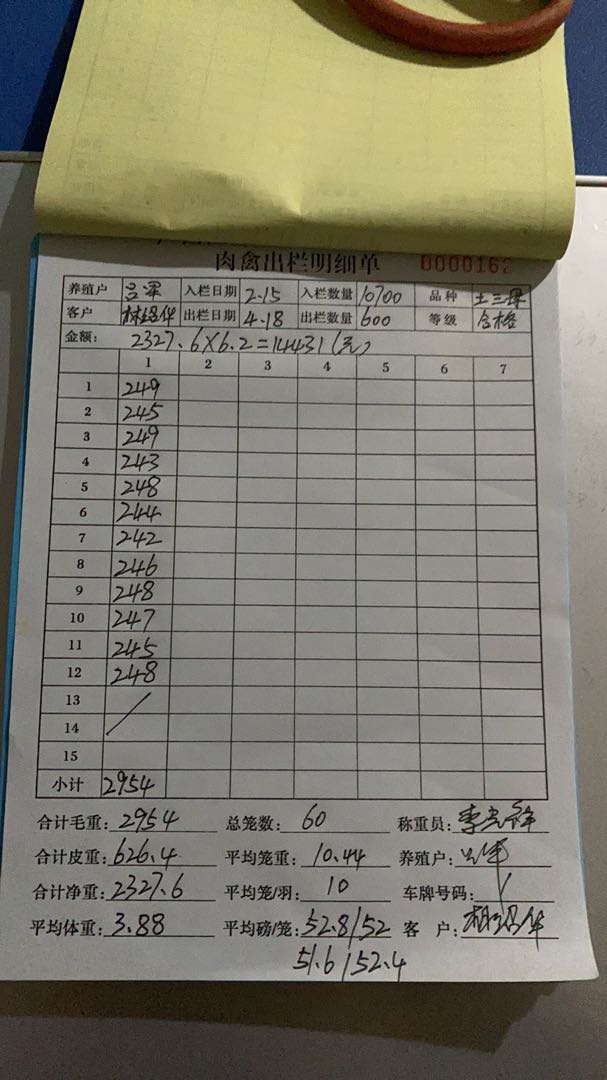 肉禽出栏明细单 0000162
养殖户 吕军 入栏日期 2.15 入栏数量 10700 品种 土三
客户 出栏日期 4.18 出栏数量 600 等级 合格
金额: 2327.6×6.2=14431(元)
1 2 3 4 5 6 7
1 249
2 245
3 249
4 243
5 248
6 244
7 242
8 246
9 248
10 247
11 245
12 248
13
14
15
小计 2954
合计毛重: 2954 总笼数: 60 称重员:
合计皮重: 626.4 平均笼重: 10.44 养殖户: 吕军
合计净重: 2327.6 平均笼/羽: 10 车牌号码: /
平均体重: 3.88 平均磅/笼: 52.8/52 客 户:
51.6/52.4